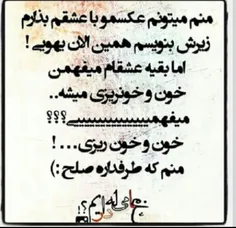 منم میتونم عکسمو با عشقم بذارم
زیرش بنویسم همین الان یهویی!
اما بقیه عشقام میفهمن
خون و خونریزی میشه..
میفهمییییییییییییی؟؟؟
خون و خون ریزی...!
منم که طرفداره صلح:)